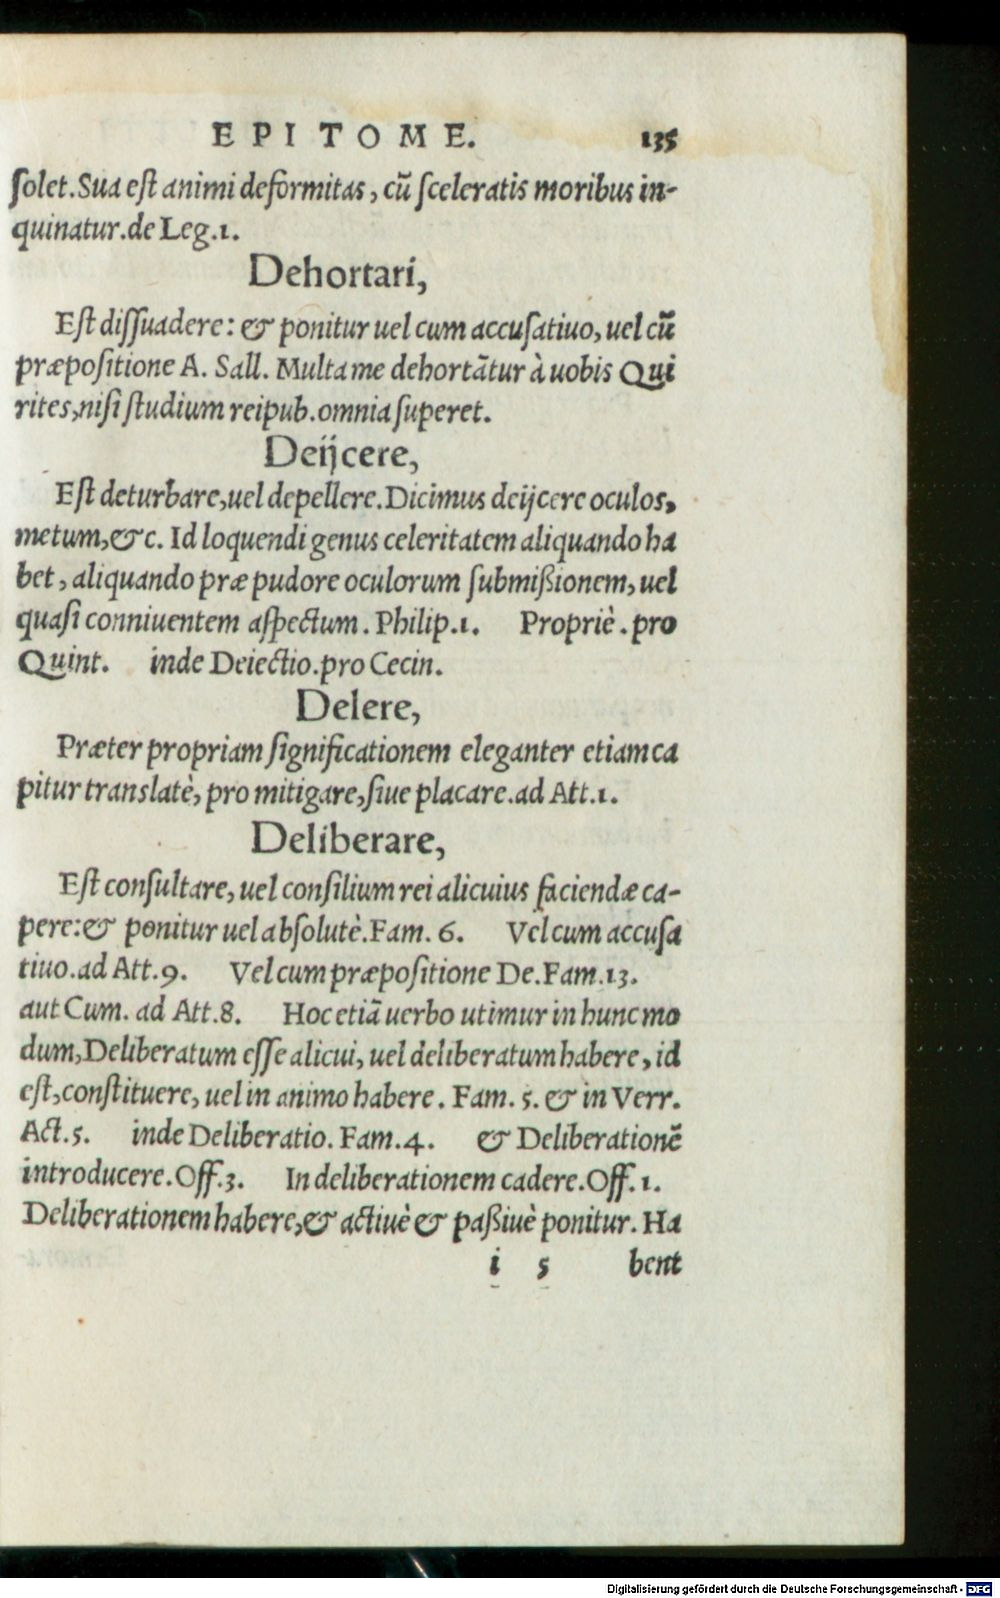 EPITOME. 135
ſolet. Sua eſt animi deformitas, cū ſceleratis moribus in-
quinatur. de Leg. 1.
Dehortari,
Eſt diſſuadere: & ponitur uel cum accuſatiuo, uel cū
præpoſitione A. Sall. Multa me dehortātur à uobis Qui
rites, niſi ſtudium reipub. omnia ſuperet.
Deijcere,
Eſt deturbare, uel depellere. Dicimus deijcere oculos,
metum, &c. Id loquendi genus celeritatem aliquando ha
bet, aliquando præ pudore oculorum ſubmißionem, uel
quaſi conniuentem aſpectum. Philip. 1. Propriè. pro
Quint. inde Deiectio. pro Cecin.
Delere,
Præter propriam ſignificationem eleganter etiam ca
pitur translatè, pro mitigare, ſiue placare. ad Att. 1.
Deliberare,
Eſt conſultare, uel conſilium rei alicuius faciendæ ca-
pere: & ponitur uel abſolutè. Fam. 6. Vel cum accuſa
tiuo. ad Att. 9. Vel cum præpoſitione De. Fam. 13.
aut Cum. ad Att. 8. Hoc etiā uerbo utimur in hunc mo
dum, Deliberatum eſſe alicui, uel deliberatum habere, id
eſt, conſtituere, uel in animo habere. Fam. 5. & in Verr.
Act. 5. inde Deliberatio. Fam. 4. & Deliberationē
introducere. Off. 3. In deliberationem cadere. Off. 1.
Deliberationem habere, & actiuè & paßiuè ponitur. Ha
i 5 bent
Digitalisierung gefördert durch die Deutsche Forschungsgemeinschaft - DFG